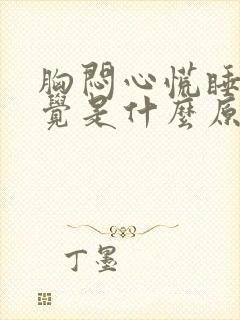 胸悶心慌睡
覺是什麼原
丁墨